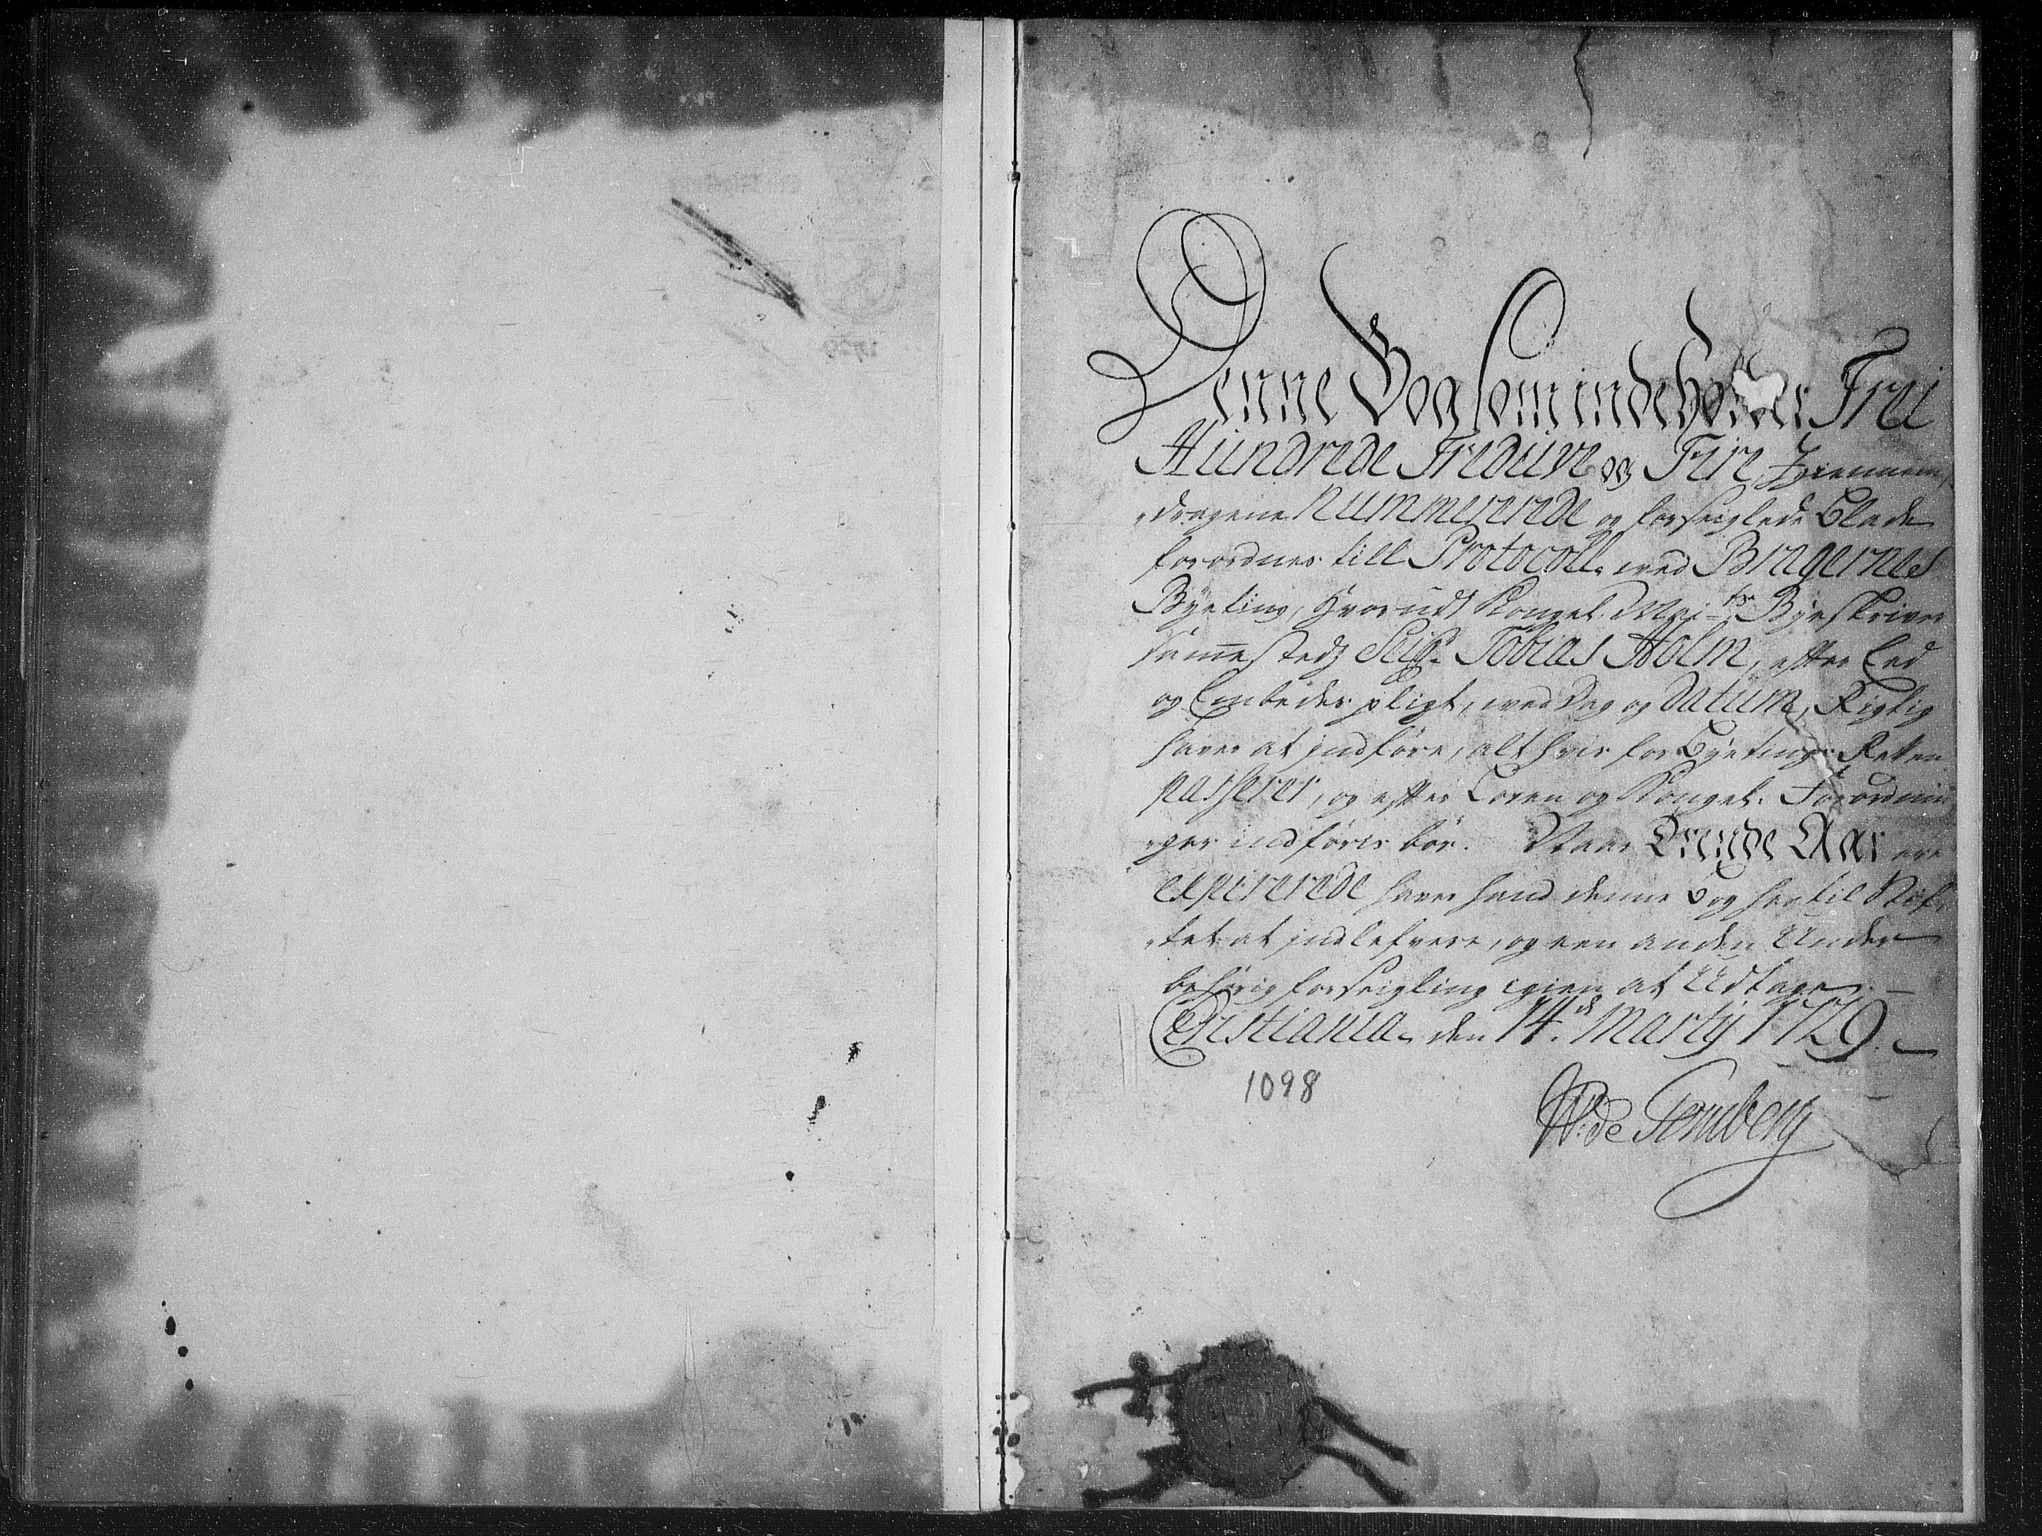 Denne Bog som indeholder Trei
Hundrede Tredeive og Fire Igiennem,
dragene Nummererede og forseiglede Blade
forordnes till Protocoll, ved Bragernes
Byeting, hvorudi Kongel. Mai:ts Byeskriver
sammestedz Seigr. Tobias Holm, efter Eed
og Embedes pligt, med Dag og Datum, Rigtig
haver at jndføre, alt hvis for Byetings Retten
passerer, og efter Loven og Kongel. Forordnin
ger indføris bør. Naar Trende Aar ere
expirerede haver hand denne bog her til Stif,
tet at jndlefvere, og een anden Under
behørig forseigling igien at Udtage. —
Christiania den 14de Martij 1729. —
1098
W: de Tonsberg